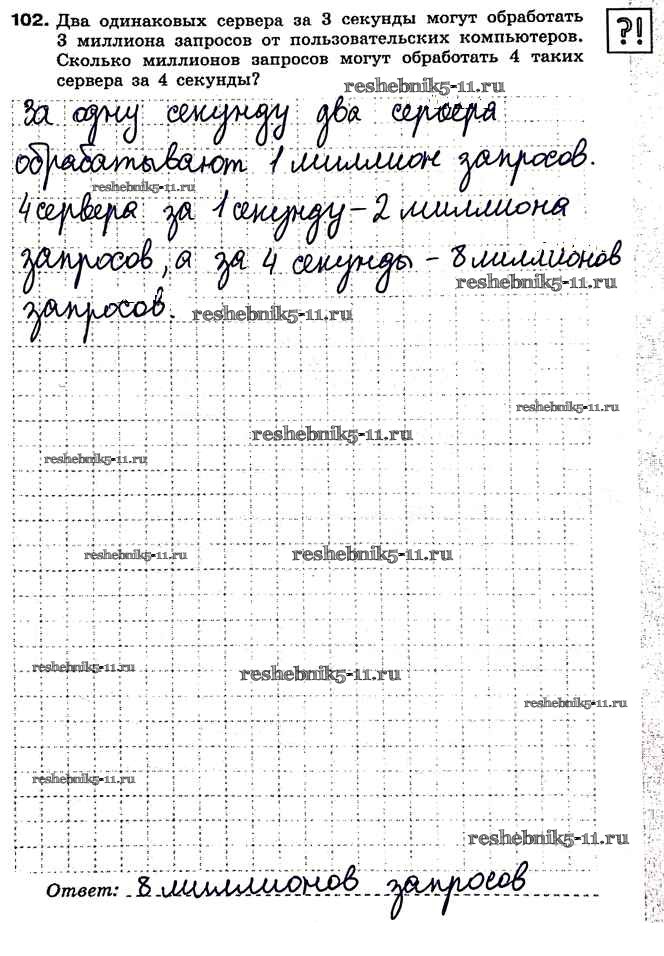 102. Два одинаковых сервера за 3 секунды могут обработать
3 миллиона запросов от пользовательских компьютеров.
Сколько миллионов запросов могут обработать 4 таких
сервера за 4 секунды?
?!
reshebnik5-11.ru
За одну секунду два сервера
обрабатывают 1 миллион запросов.
reshebnik5-11.ru
4 сервера за 1 секунду – 2 миллиона
запросов, а за 4 секунды – 8 миллионов
reshebnik5-11.ru
запросов.
reshebnik5-11.ru
reshebnik5-11.ru
reshebnik5-11.ru
reshebnik5-11.ru
reshebnik5-11.ru
reshebnik5-11.ru
reshebnik5-11.ru
reshebnik5-11.ru
reshebnik5-11.ru
reshebnik5-11.ru
reshebnik5-11.ru
Ответ: 8 миллионов запросов